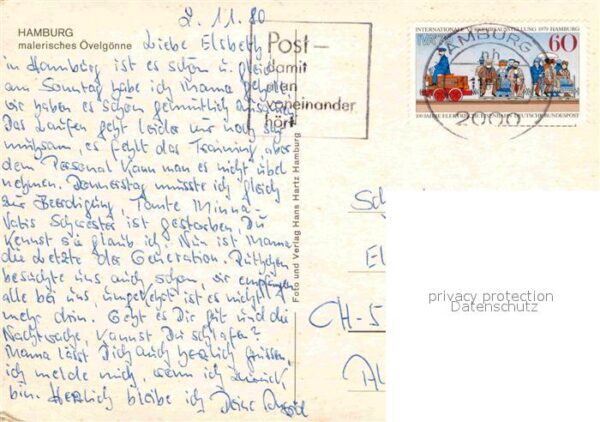 2.11.80
HAMBURG
malerisches Övelgönne
Liebe Elsbeth
in Hamburg ist es schön u. gleich
am Sonntag habe ich Mama geholt
wir haben es schön gemütlich
Das Laufen geht leider nur noch sehr
mühsam, es fehlt das Training aber
dem Personal kann man es nicht übel
nehmen. Donnerstag musste ich gleich
zur Beerdigung, Tante Minna
Vatis Schwester ist gestorben, Du
kennst sie glaub ich. Nun ist Mama
die Letzte der Generation. Ruthchen
besuchte uns auch schon, wir empfangen
alle bei uns, umgekehrt ist es nicht
mehr drin. Geht es Dir gut und die
Nachtwache, kannst Du schlafen?
Mama lässt Dich auch herzlich grüssen,
ich melde mich, wenn ich zurück
bin. Herzlich bleibe ich Deine
Post –
damit
man
voneinander
hört
INTERNATIONALE VERKEHRSAUSSTELLUNG 1979 HAMBURG
60
100 JAHRE ELEKTRISCHE EISENBAHN DEUTSCHE BUNDESPOST
HAMBURG
nb
2000
Foto und Verlag Hans Hartz Hamburg
Sc
El
CH-5
privacy protection
Datenschutz